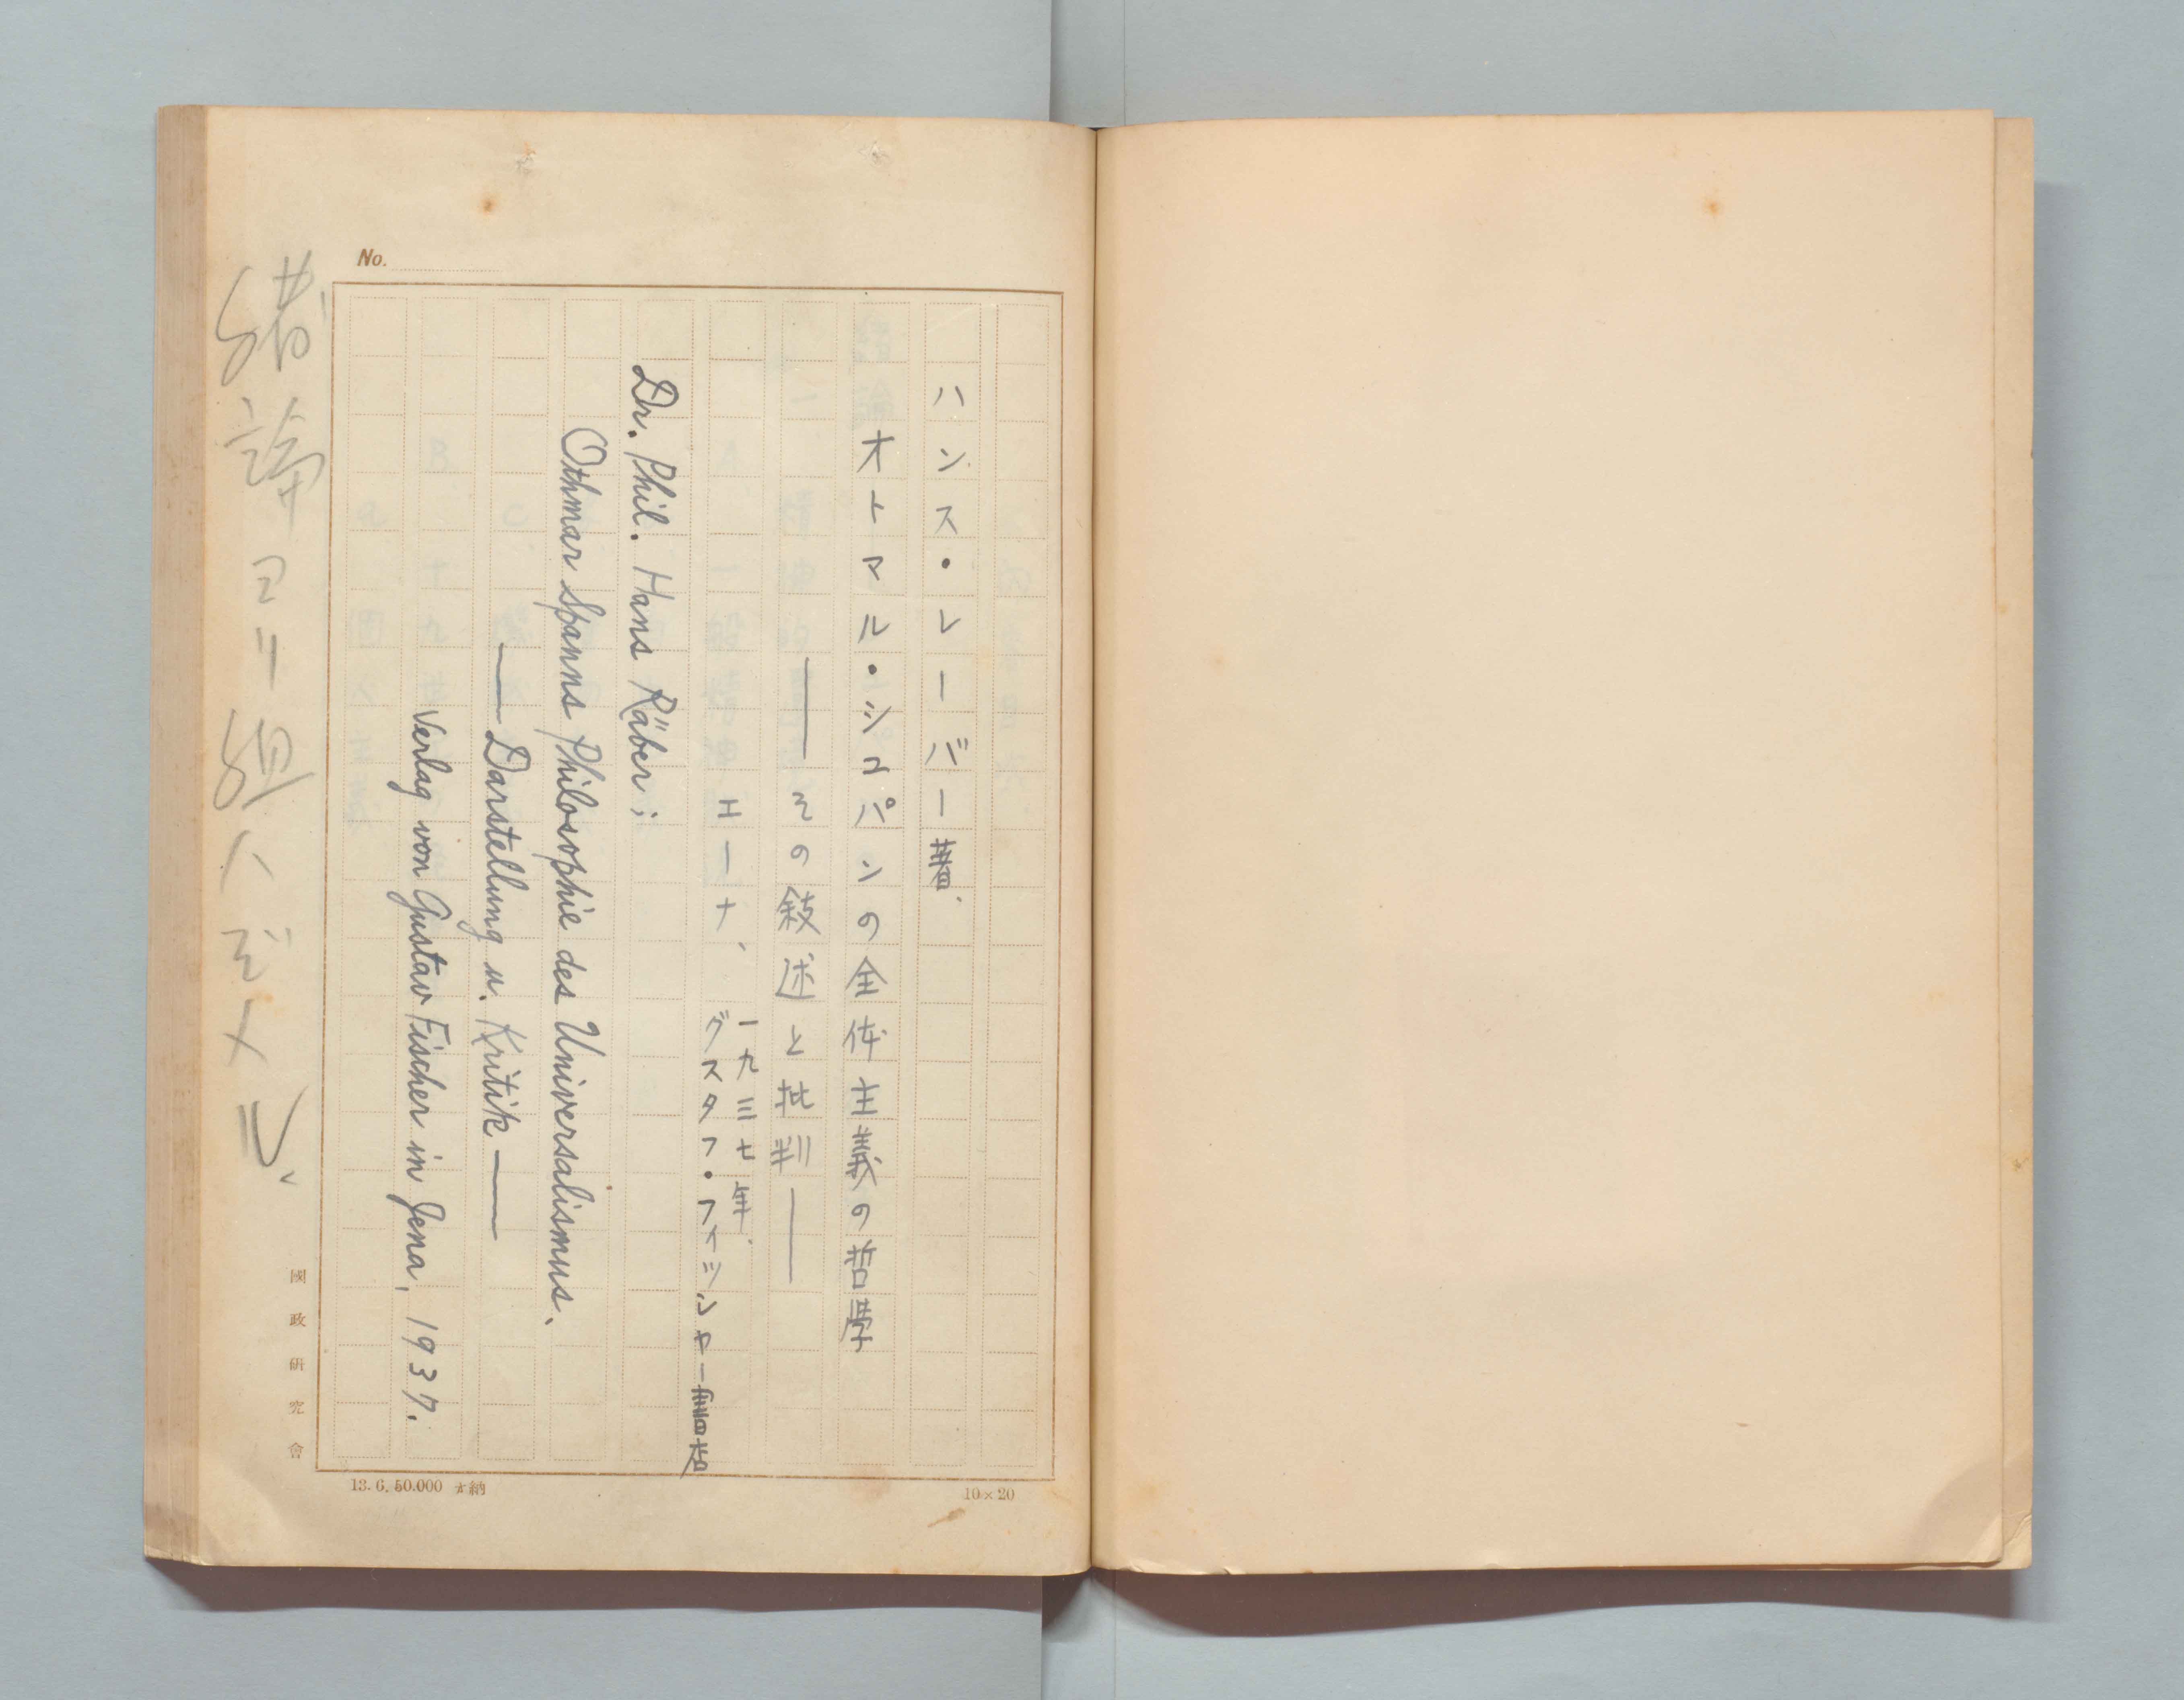 ハンス・レーバー著.
オトマル・シユパンの全体主義の哲學
――その敍述と批判――
エーナ、
一九三七年.
グスタフ・フイツシヤー書店
Dr. Phil. Hans Räber;
Othmar Spanns Philosophie des Universalismus.
—Darstellung u. Kritik—
Verlag von Gustav Fischer in Jena, 1937.
緒論ヨリ組ハジメル、
No.
國政研究會
13.6.50.000 納
10×20